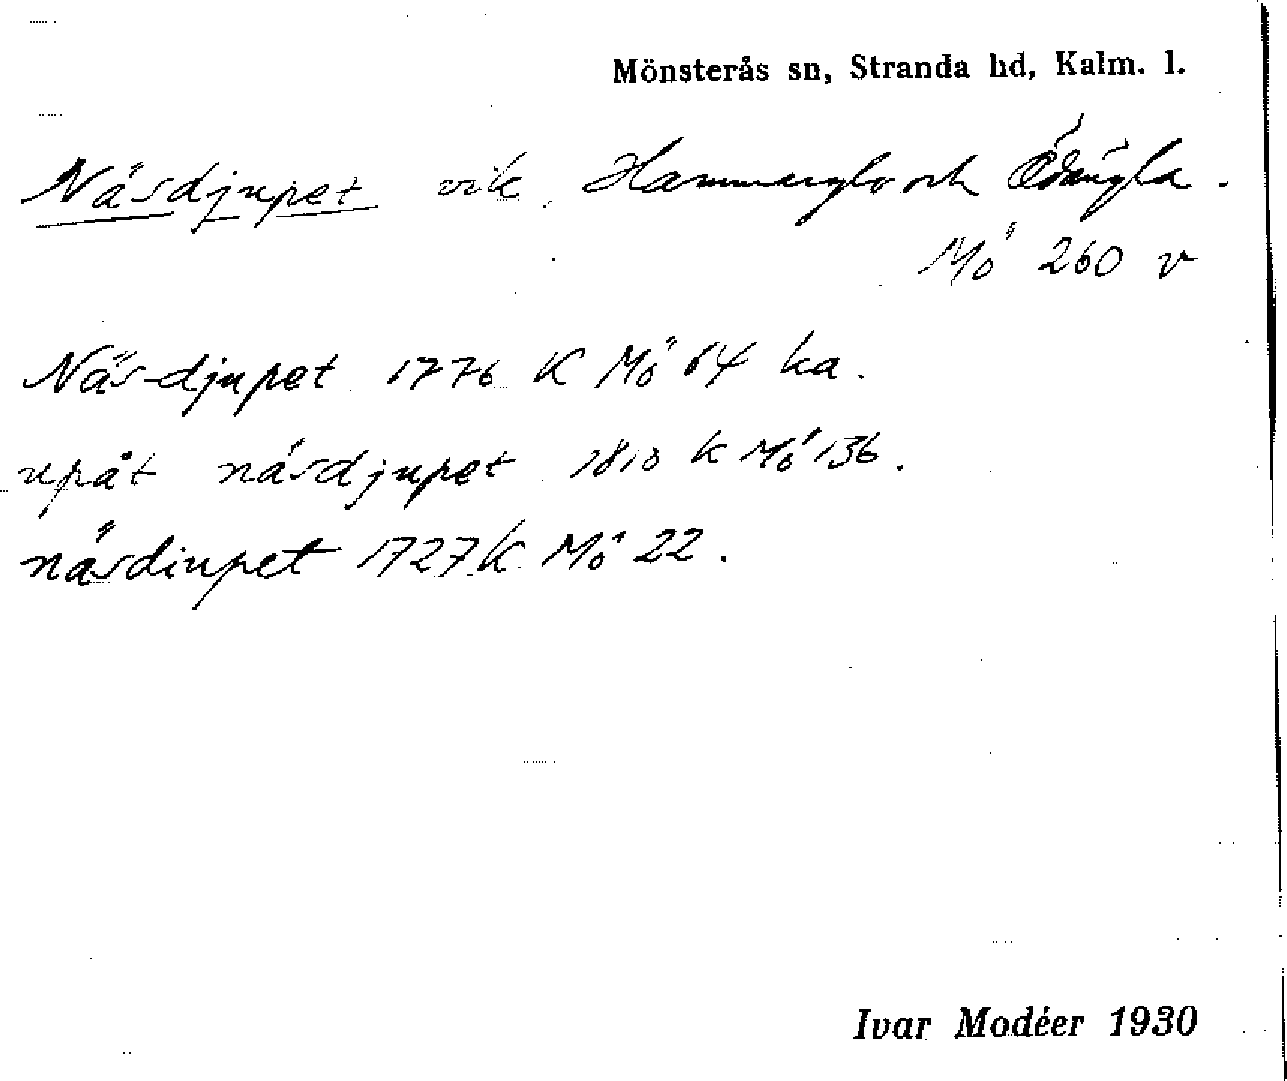 Mönsterås sn, Stranda hd, Kalm. l.
Näsdjupet vik, Hammarglo och Ödängla.
Mö 260 v
Näs-djupet 1776 K Mö 64 ka.
upåt näsdjupet 1810 K Mö 136.
näsdiupet 1727 K Mö 22.
Ivar Modéer 1930